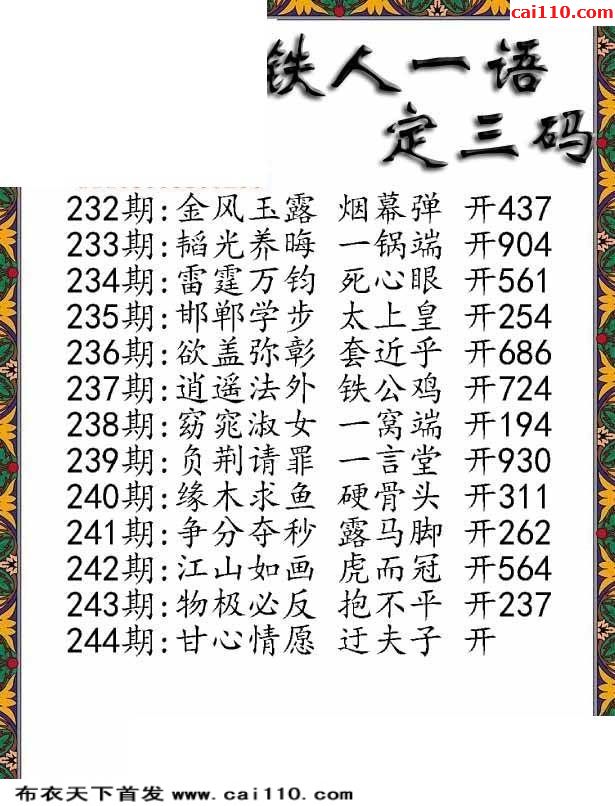 cai110.com
铁人一语
定三码
232期:金风玉露 烟幕弹 开437
233期:韬光养晦 一锅端 开904
234期:雷霆万钧 死心眼 开561
235期:邯郸学步 太上皇 开254
236期:欲盖弥彰 套近乎 开686
237期:逍遥法外 铁公鸡 开724
238期:窈窕淑女 一窝端 开194
239期:负荆请罪 一言堂 开930
240期:缘木求鱼 硬骨头 开311
241期:争分夺秒 露马脚 开262
242期:江山如画 虎而冠 开564
243期:物极必反 抱不平 开237
244期:甘心情愿 迂夫子 开
布衣天下首发 www.cai110.com